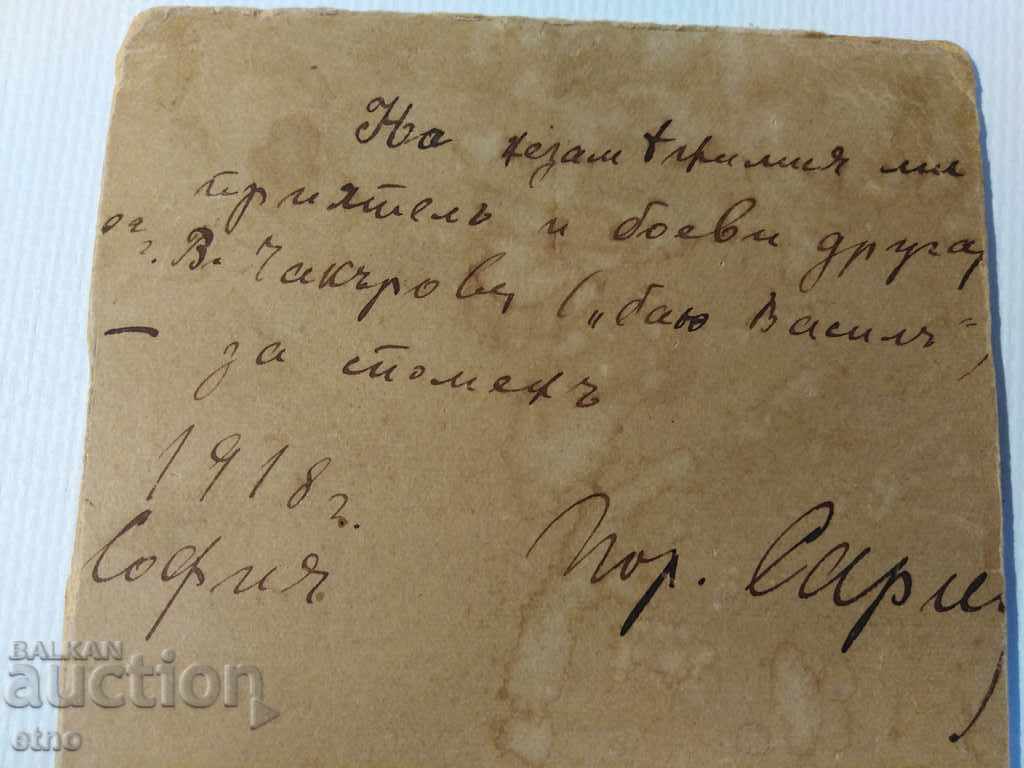 На незамѣнимия ми
приятель и боеви друга
ог. г. В. Чакърови („баю Василъ“)
за споменъ
1918 г.
София
Пор.
BALKAN
auction
etno